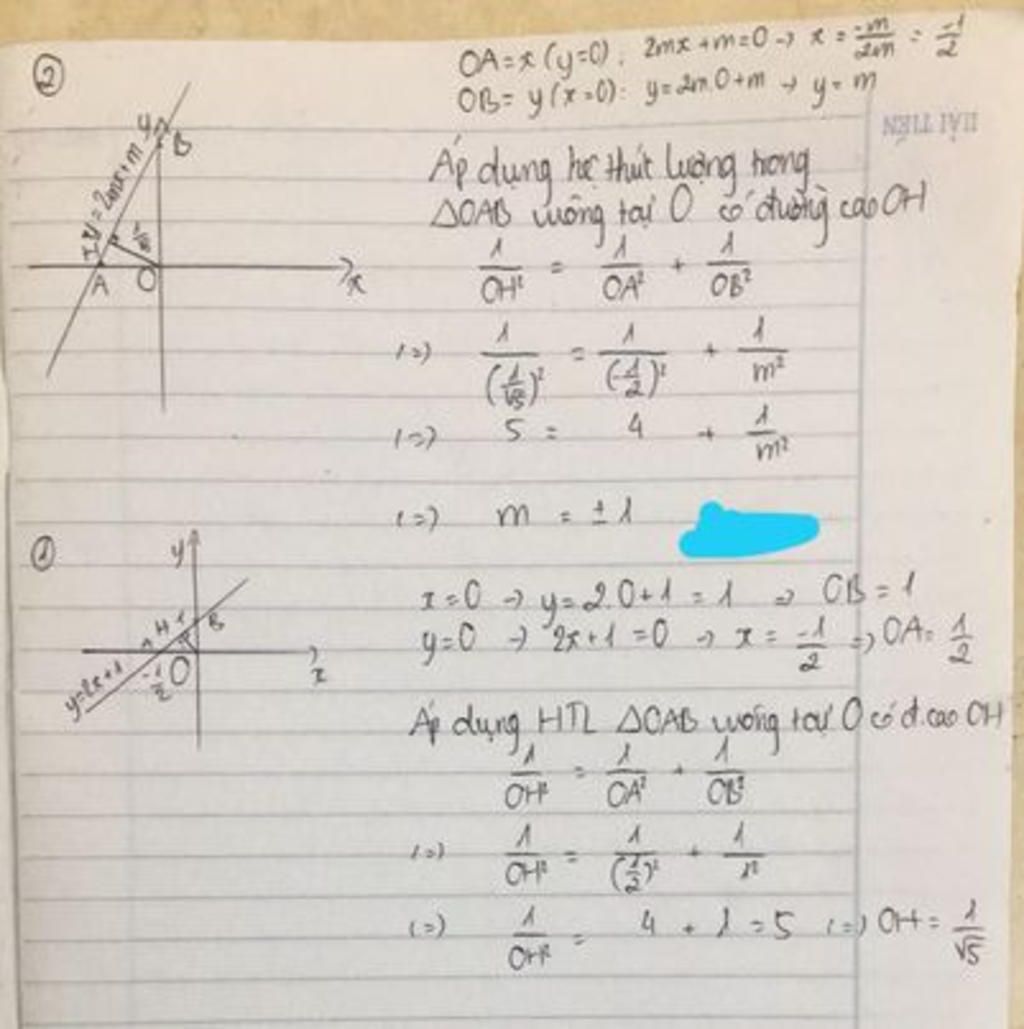 ②
OA = x (y=0): 2mx + m = 0 → x = -m/2m = -1/2
OB = y (x=0): y = 2m.0 + m → y = m
HẢI TIẾN
y
B
y = 2mx + m
H
1/√5
A O x
Áp dụng hệ thức lượng trong
ΔOAB vuông tại O có đường cao OH
1/OH² = 1/OA² + 1/OB²
(=) 1/(1/√5)² = 1/(-1/2)² + 1/m²
(=) 5 = 4 + 1/m²
(=) m = ± 1
①
y
A H 1 B
y=2x+1 -1/2 O x
x=0 → y = 2.0+1 = 1 => OB = 1
y=0 → 2x+1 = 0 → x = -1/2 => OA = 1/2
Áp dụng HTL ΔOAB vuông tại O có đ.cao OH
1/OH² = 1/OA² + 1/OB²
(=) 1/OH² = 1/(1/2)² + 1/1²
(=) 1/OH² = 4 + 1 = 5 (=) OH = 1/√5